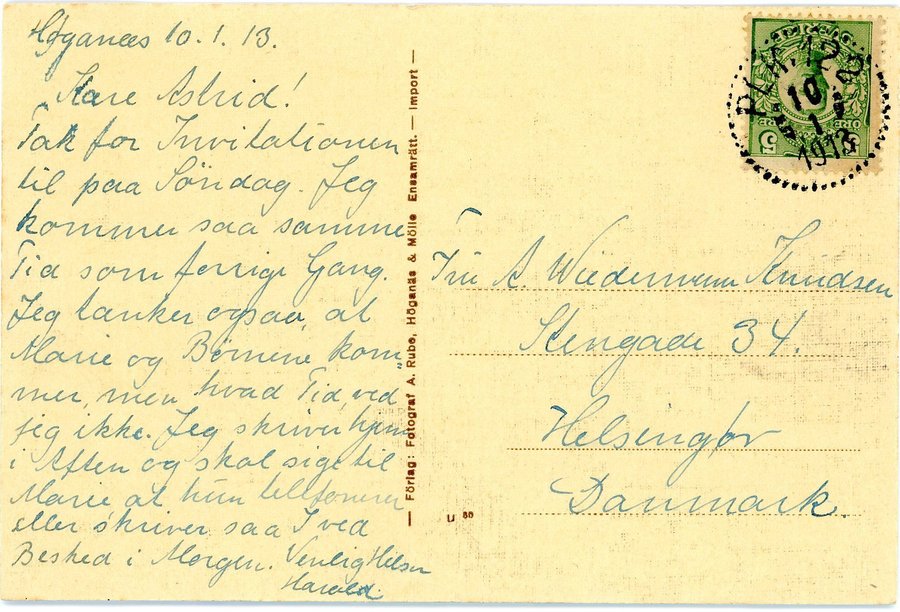 Høganæs 10.1.13.
Kære Astrid!
Tak for Invitationen
til paa Söndag. Jeg
kommer saa samme
Tid som forrige Gang.
Jeg tænker ogsaa, at
Marie og Börnene kom-
mer, men hvad Tid, ved
jeg ikke. Jeg skriver hjem
i Aften og skal sige til
Marie at hun telefonerer
eller skriver saa I ved
Besked i Morgen. Venlig Hilsen
Harald.
— Förlag: Fotograf A. Rube, Höganäs & Mölle Ensamrätt. — Import —
u 80
PLK. 122
10
1
1913
5 5
Fru A. Wiedemann Knudsen
Stengade 34.
Helsingør
Danmark.